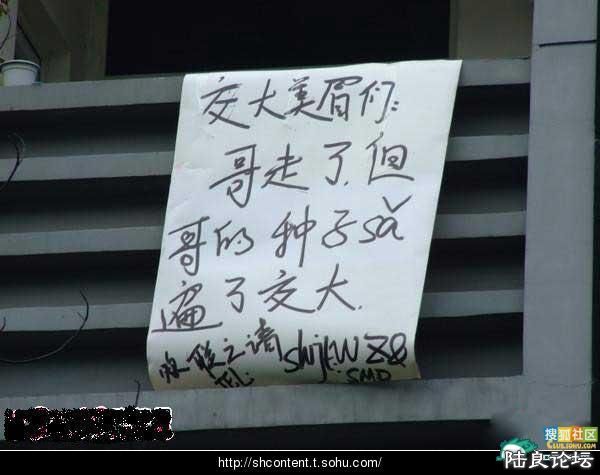 交大美眉们:
哥走了.但
哥的种子sǎ
遍了交大.
SMD
搜狐社区
CLUB.SOHU.COM
陆良论坛
http://shcontent.t.sohu.com/